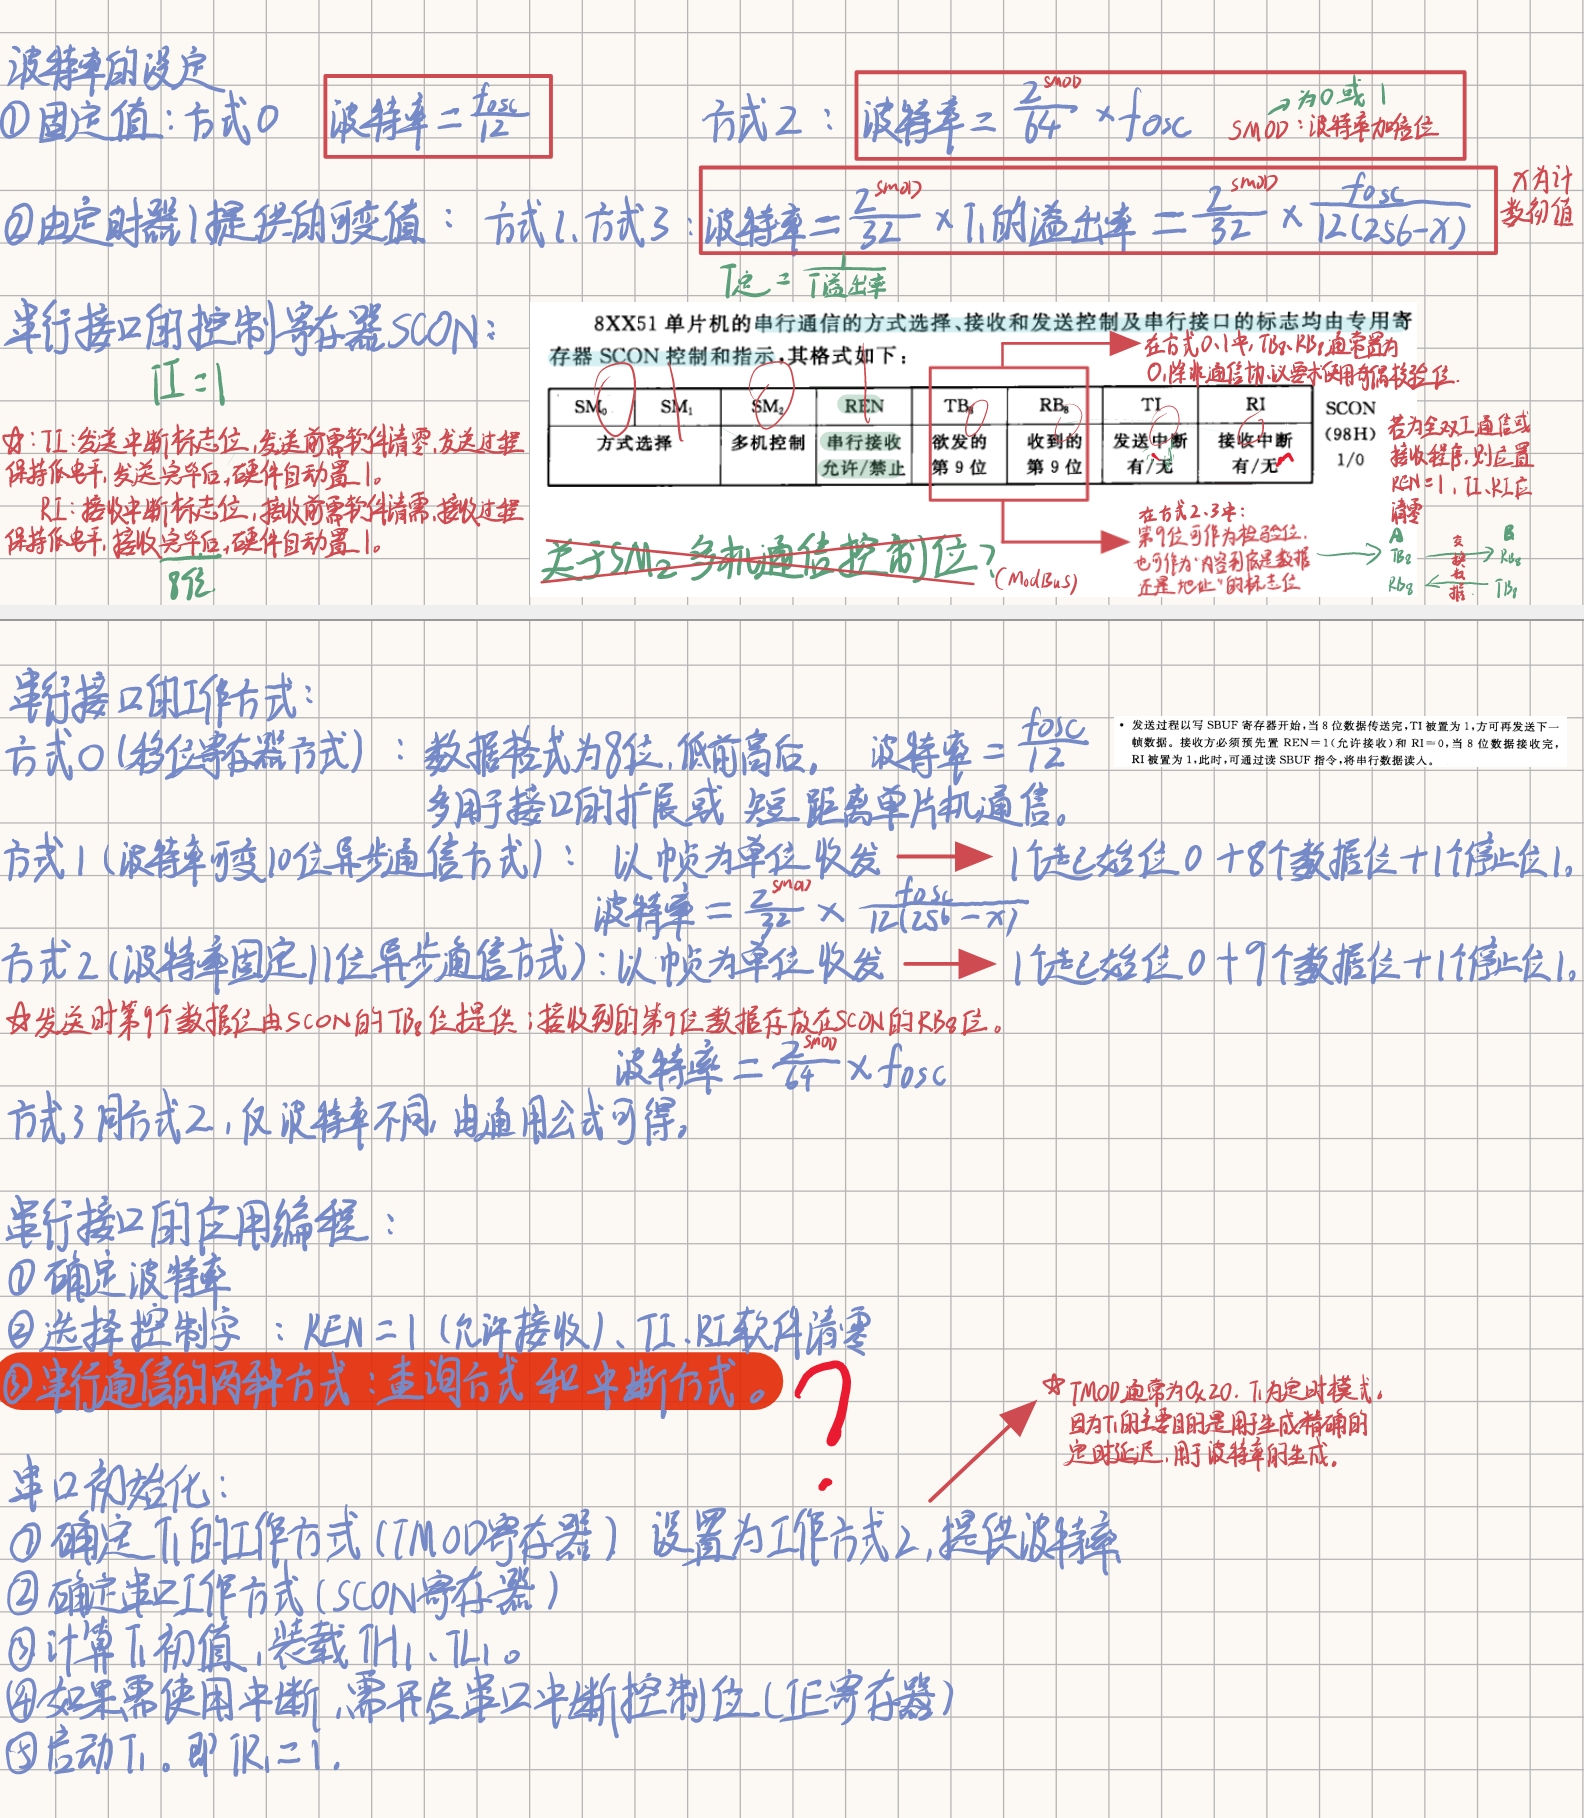 波特率的设定
①固定值：方式0 波特率=fosc/12 方式2：波特率=2^SMOD/64×fosc →为0或1
SMOD：波特率加倍位
②由定时器1提供的可变值：方式1、方式3：波特率=2^SMOD/32×T1的溢出率=2^SMOD/32×fosc/12(256-X)
X为计
数初值
T定=1/T溢出率
串行接口的控制寄存器SCON：
TI=1
☆：TI：发送中断标志位，发送前需软件清零，发送过程
保持低电平，发送完毕后，硬件自动置1。
RI：接收中断标志位，接收前需软件清需，接收过程
保持低电平，接收完毕后，硬件自动置1。
8位
8XX51 单片机的串行通信的方式选择、接收和发送控制及串行接口的标志均由专用寄
存器 SCON 控制和指示,其格式如下：
在方式0.1中，TB8、RB8通常置为
0，除非通信协议要求使用奇偶校验位.
SM0 SM1 SM2 REN TB8 RB8 TI RI SCON
方式选择 多机控制 串行接收 欲发的 收到的 发送中断 接收中断 （98H）
允许/禁止 第 9 位 第 9 位 有/无 有/无 1/0
0 1 0 1 0 0 0 0
若为全双工通信或
接收程序，则应置
REN=1，TI、RI应
清零
关于SM2 多机通信控制位？
(ModBus)
在方式2.3中：
第9位可作为检验位，
也可作为“内容到底是数据
还是地址”的标志位
A B
TB8 → RB8
RB8 ← TB8
交换数据
串行接口的工作方式：
方式0（移位寄存器方式）：数据格式为8位，低前高后。 波特率=fosc/12
多用于接口的扩展或 短距离单片机通信。
• 发送过程以写 SBUF 寄存器开始,当 8 位数据传送完,TI 被置为 1,方可再发送下一
帧数据。接收方必须预先置 REN=1(允许接收)和 RI=0,当 8 位数据接收完,
RI 被置为 1,此时,可通过读 SBUF 指令,将串行数据读入。
方式1（波特率可变10位异步通信方式）：以帧为单位收发→1个起始位0+8个数据位+1个停止位1。
波特率=2^SMOD/32×fosc/12(256-X)
方式2（波特率固定11位异步通信方式）：以帧为单位收发→1个起始位0+9个数据位+1个停止位1。
☆发送时第9个数据位由SCON的TB8位提供；接收到的第9位数据存放在SCON的RB8位。
波特率=2^SMOD/64×fosc
方式3同方式2，仅波特率不同，由通用公式可得。
串行接口的应用编程：
①确定波特率
②选择控制字：REN=1（允许接收）、TI、RI软件清零
③串行通信的两种方式：查询方式和中断方式。 ?
☆TMOD通常为0x20. T1为定时模式。
因为T1的主要目的是用于生成精确的
定时延迟，用于波特率的生成。
串口初始化：
①确定T1的工作方式（TMOD寄存器）设置为工作方式2，提供波特率
②确定串口工作方式（SCON寄存器）
③计算T1初值，装载TH1、TL1。
④如果需使用中断，需开启串口中断控制位（IE寄存器）
⑤启动T1。即TR1=1.